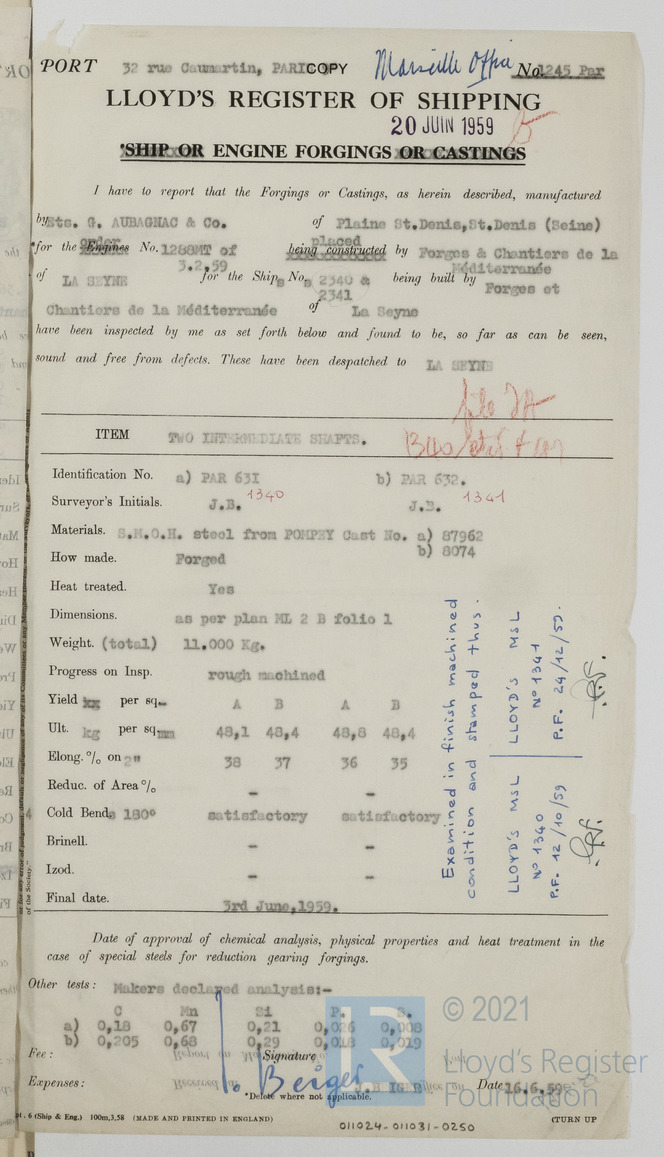 PORT 32 rue Caumartin, PARIS COPY Marseille Office No. 1245 Par
LLOYD'S REGISTER OF SHIPPING
20 JUIN 1959
*SHIP OR ENGINE FORGINGS OR CASTINGS
I have to report that the Forgings or Castings, as herein described, manufactured
by Ets. G. AUBAGNAC & Co. of Plaine St.Denis,St.Denis (Seine)
order placed
*for the Engines No. 1268MT of being constructed by Forges & Chantiers de la
3.2.59 Méditerranée
of LA SEYNE for the Ships Nos 2340 & being built by Forges et
2341
Chantiers de la Méditerranée of La Seyne
have been inspected by me as set forth below and found to be, so far as can be seen,
sound and free from defects. These have been despatched to LA SEYNE
ITEM TWO INTERMEDIATE SHAFTS.
Identification No. a) PAR 631 b) PAR 632.
Surveyor's Initials. J.B. 1340 J.B. 1341
Materials. S.M.O.H. steel from POMPEY Cast No. a) 87962
b) 8074
How made. Forged
Heat treated. Yes
Dimensions. as per plan ML 2 B folio 1
Weight. (total) 11.000 Kg.
Progress on Insp. rough machined
Yield per sq. A B A B
Ult. kg per sq mm 48,1 48,4 48,8 48,4
Elong. % on 2" 38 37 36 35
Reduc. of Area % - -
Cold Bends 180° satisfactory satisfactory
Brinell. - -
Izod. - -
Final date. 3rd June, 1959.
Examined in finish machined
condition and stamped thus.
LLOYD'S MSL LLOYD'S MSL
N° 1340 N° 1341
P.F. 12/10/59 P.F. 24/12/59.
Date of approval of chemical analysis, physical properties and heat treatment in the
case of special steels for reduction gearing forgings.
Other tests: Makers declared analysis:-
C Mn Si P. S.
a) 0,18 0,67 0,21 0,026 0,008
b) 0,205 0,68 0,29 0,018 0,019
Fee: Signature
Expenses: J. Beiger J.BEIGER Date 16.6.59
*Delete where not applicable.
pt. 6 (Ship & Eng.) 100m,3,58 (MADE AND PRINTED IN ENGLAND) (TURN UP
011024-011031-0250
LR
© 2021
Lloyd's Register
Foundation